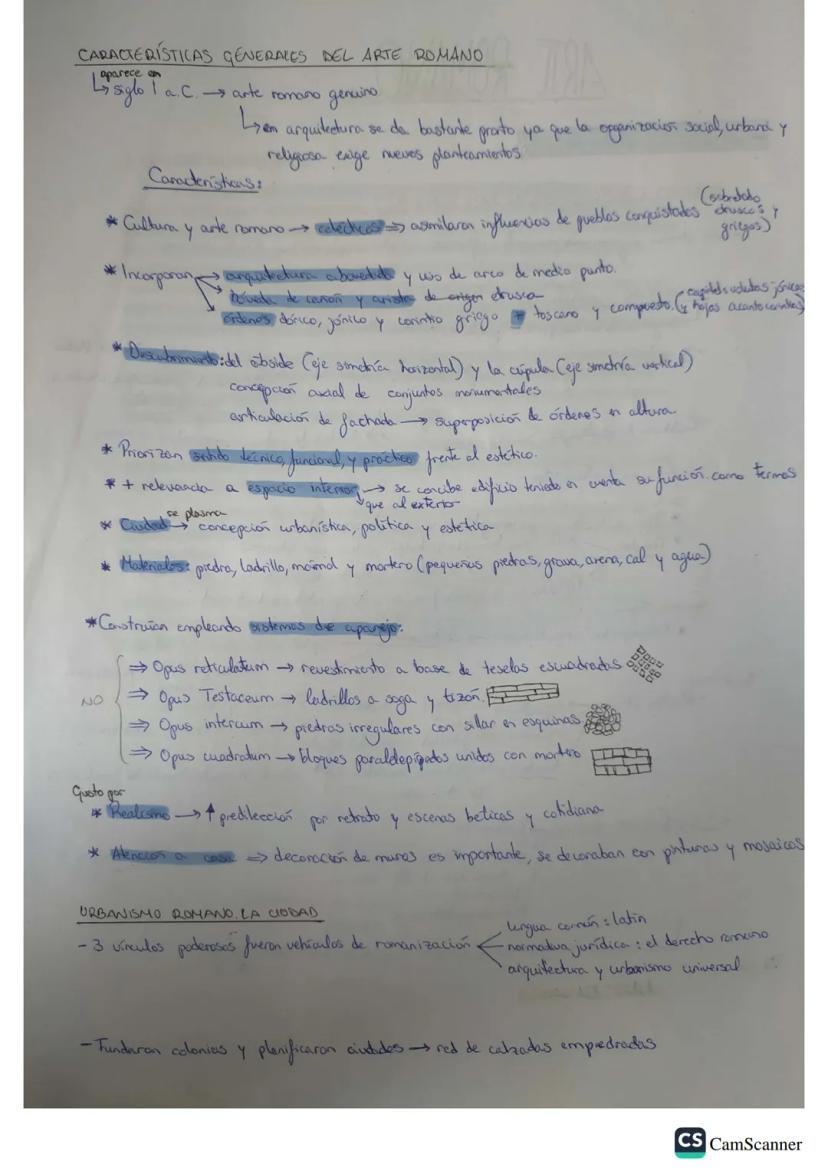 CARACTERÍSTICAS GENERALES DEL ARTE ROMANO
aparece en
siglo I a.C. → arte romano genuino
en arquitectura se da bastante pronto ya que la organización social, urbana y
religiosa exige nuevos planteamientos
Características:
* Cultura y arte romano → eclécticos ⇒ asimilaron influencias de pueblos conquistados (sobretodo etruscos y griegos)
* Incorporan → arquitectura abovedada y uso de arco de medio punto.
bóveda de cañón y arista de origen etrusca
órdenes dórico, jónico y corintio griego + toscano y compuesto. (capitel volutas jónicas y hojas acanto corintias)
* Descubrimiento: del ábside (eje simetría horizontal) y la cúpula (eje simetría vertical)
concepción axial de conjuntos monumentales
articulación de fachada → superposición de órdenes en altura
* Priorizan sentido técnico, funcional, y práctico frente al estético.
* + relevancia a espacio interior → se concibe edificio teniedo en cuenta su función. como termas
que al exterior
* Ciudad se plasma → concepción urbanística, política y estética
* Materiales: piedra, ladrillo, mármol y mortero (pequeñas piedras, grava, arena, cal y agua)
* Construían empleando sistemas de aparejo:
⇒ Opus reticulatum → revestimiento a base de teselas escuadradas
NO ⇒ Opus Testaceum → ladrillos a soga y tizón.
⇒ Opus intercum → piedras irregulares con sillar en esquinas
⇒ Opus cuadratum → bloques paraldepípedos unidos con mortero
Gusto por
* Realismo → ↑ predilección por retrato y escenas belicas y cotidiana
* Atención a casa ⇒ decoración de muros es importante, se decoraban con pinturas y mosaicos
URBANISMO ROMANO. LA CIUDAD
- 3 vínculos poderosos fueron vehículos de romanización
lengua común: latín
normativa jurídica: el derecho romano
arquitectura y urbanismo universal
- Fundaron colonias y planificaron ciudades → red de calzadas empedradas
CS CamScanner